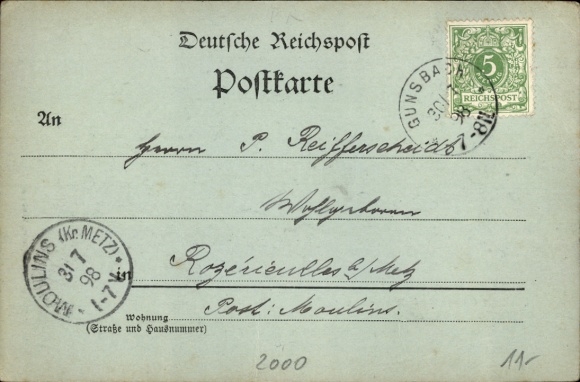 Deutsche Reichspost
Postkarte
5
REICHSPOST
GUNSBACH
30/7
98
7-8N
An
Herrn P. Reifferscheidt
Wohlgeboren
MOULINS (Kr. METZ)
31 7
98
1-7V
in Rozérieulles b/Metz
Post: Moulins.
Wohnung
(Straße und Hausnummer)
2000
11-